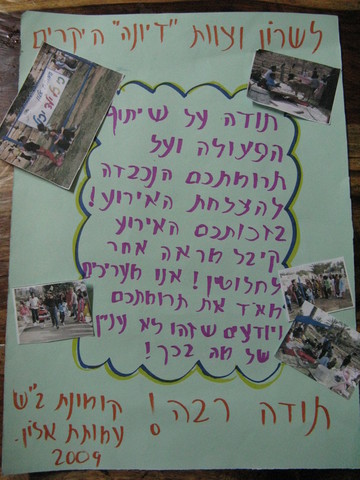 לשרון וצוות "דיונה" היקרים
תודה על שיתוף
הפעולה ועל
תרומתכם הנכבדה
להצלחת האירוע!
בזכותכם האירוע
קיבל מראה אחר
לחלוטין! אנו מעריכים
מאד את תרומתכם
ויודעים שזהו לא עניין
של מה בכך!
תודה רבה!
קומונת ב"ש
עמותת אלין.
2009